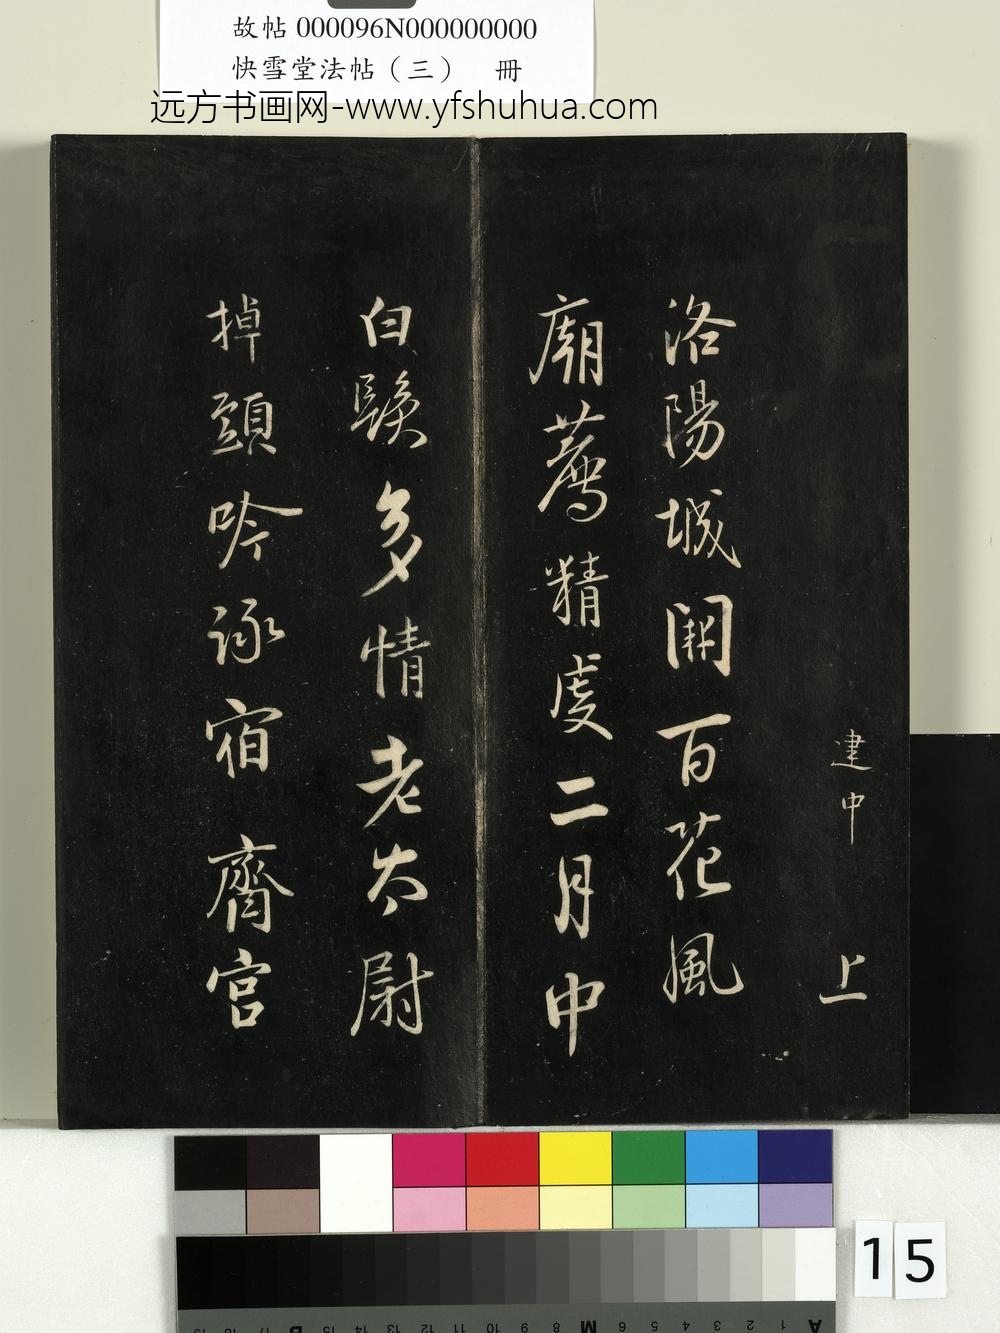 故帖 000096N000000000
快雪堂法帖（三） 冊
远方书画网-www.yfshuhua.com
建中 上
洛陽城開百花風
廟薦精虔二月中
白鬚多情老太尉
掉頭吟詠宿齋宮
15